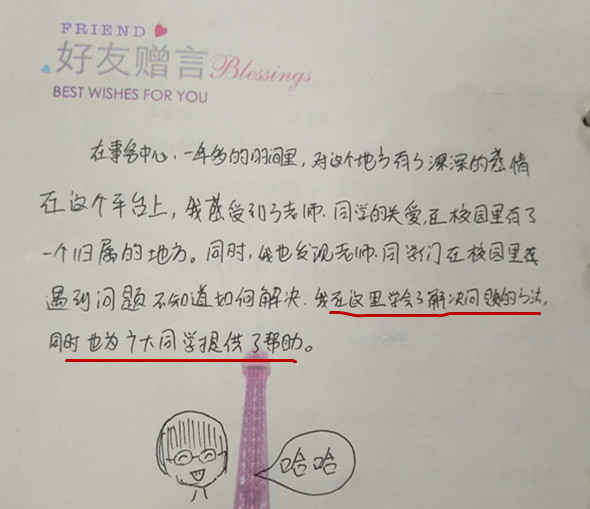 FRIEND
好友赠言Blessings
BEST WISHES FOR YOU
在事务中心，一年多的时间里，对这个地方有了深深的感情
在这个平台上，我感受到了老师、同学的关爱，在校园里有了
一个归属的地方。同时，我也发现老师、同学们在校园里在
遇到问题不知道如何解决，我在这里学会了解决问题的方法，
同时也为广大同学提供了帮助。
哈哈